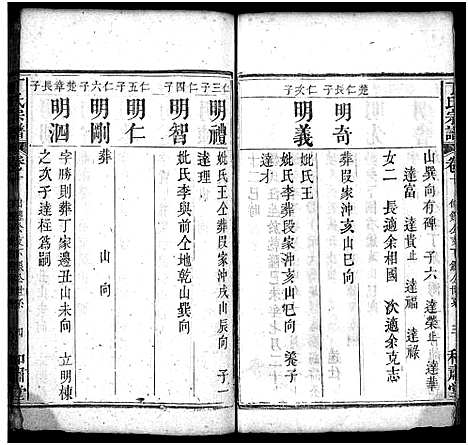 丁氏宗譜
山巽向有碑 子六 達榮 達華
達富 達貴 達福 達祿
女二 長適余相國 次適余克志
楚仁長子
明奇
葬段家沖亥山巳向
仁次子
明義
妣氏王
妣氏李葬段家沖亥山巳向 桊子
達才
仁三子
明禮
妣氏王仝葬段家沖戌山辰向 子一
達理
仁四子
明智
妣氏李與前仝地乾山巽向
仁五子
明仁
仁六子
明剛
葬 山 向
楚章長子
明泗
字勝則葬丁家邊丑山未向 立明棟
之次子達程為嗣
丁氏宗譜